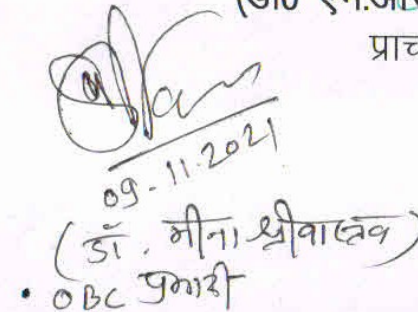 प्राच
09-11-2021
(डॉ. मीना श्रीवास्तव)
• OBC प्रभारी